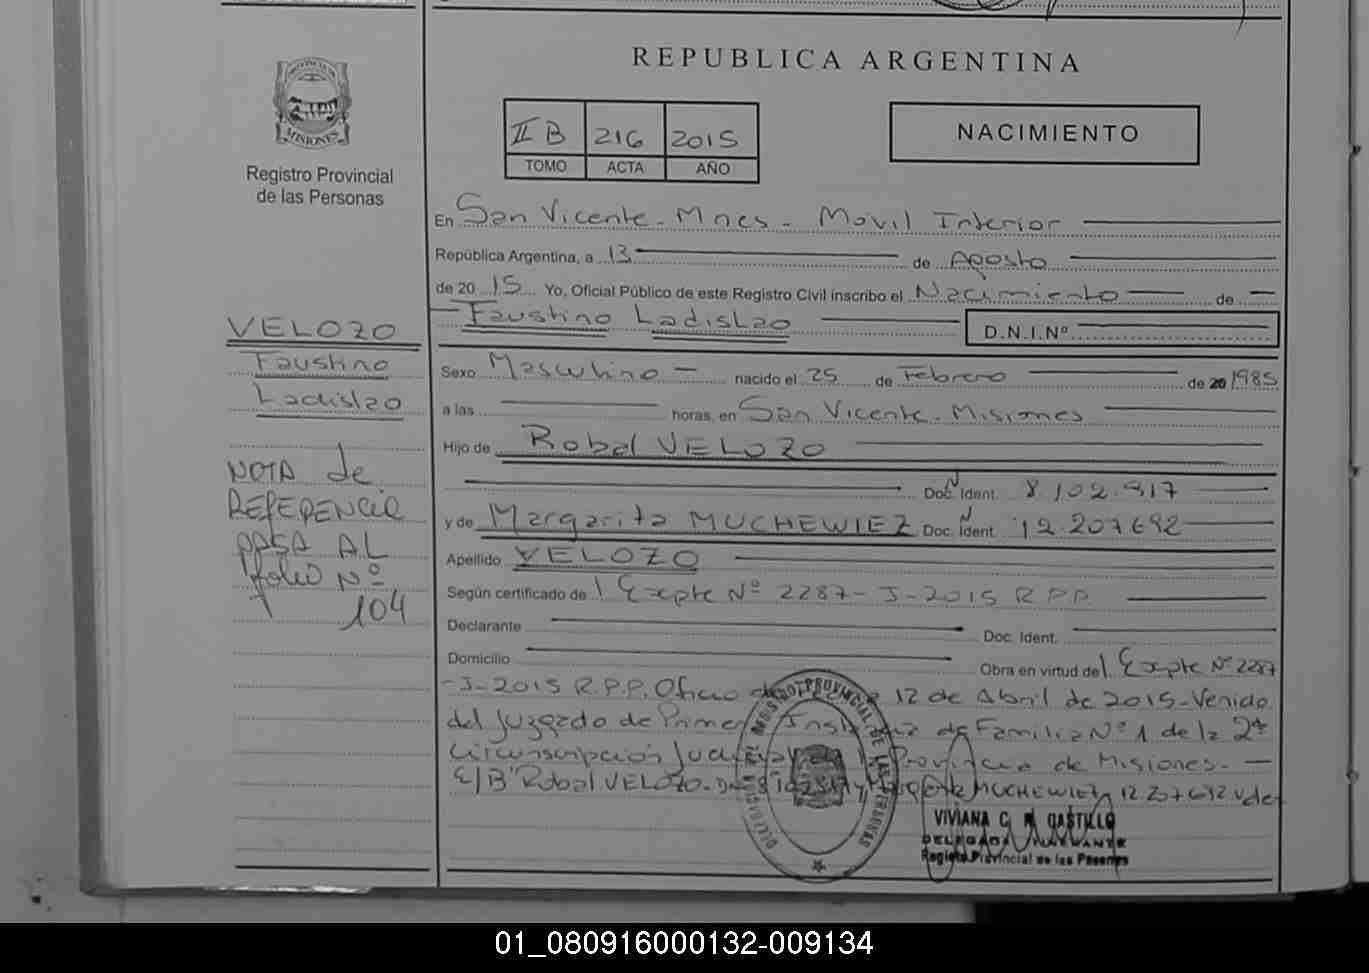 REPUBLICA ARGENTINA
PROVINCIA DE
MISIONES
Registro Provincial
de las Personas
II B 216 2015
TOMO ACTA AÑO
NACIMIENTO
En San Vicente - Mnes - Movil Interior
República Argentina, a 13 de Agosto
de 20 15 Yo, Oficial Público de este Registro Civil inscribo el Nacimiento de
Faustino Ladislao
D.N.I.Nº
VELOZO
Faustino
Ladislao
Sexo Masculino nacido el 25 de Febrero de 20 1985
a las horas, en San Vicente - Misiones
Hijo de Robal VELOZO
Doc. Ident. 8.102.917
y de Margarita MUCHEWIEZ Doc. Ident. 12.207692
Apellido VELOZO
Según certificado de Expte Nº 2287 - J - 2015 R.P.P.
Declarante Doc. Ident.
Domicilio Obra en virtud de Expte Nº 2287
- J - 2015 R.P.P. Oficio 12 de Abril de 2015 - Venido
del Juzgado de Primer de Familia Nº 1 de la 2ª
Circunscripción Provincia de Misiones. -
E/B "Robal VELOZO - MUCHEWIEZ 12 207692
NOTA de
REFERENCIA
PASA AL
folio Nº
104
REGISTRO PROVINCIAL DE LAS PERSONAS
VIVIANA C. CASTILLO
DELEGADA
Registro Provincial de las Personas
01_080916000132-009134